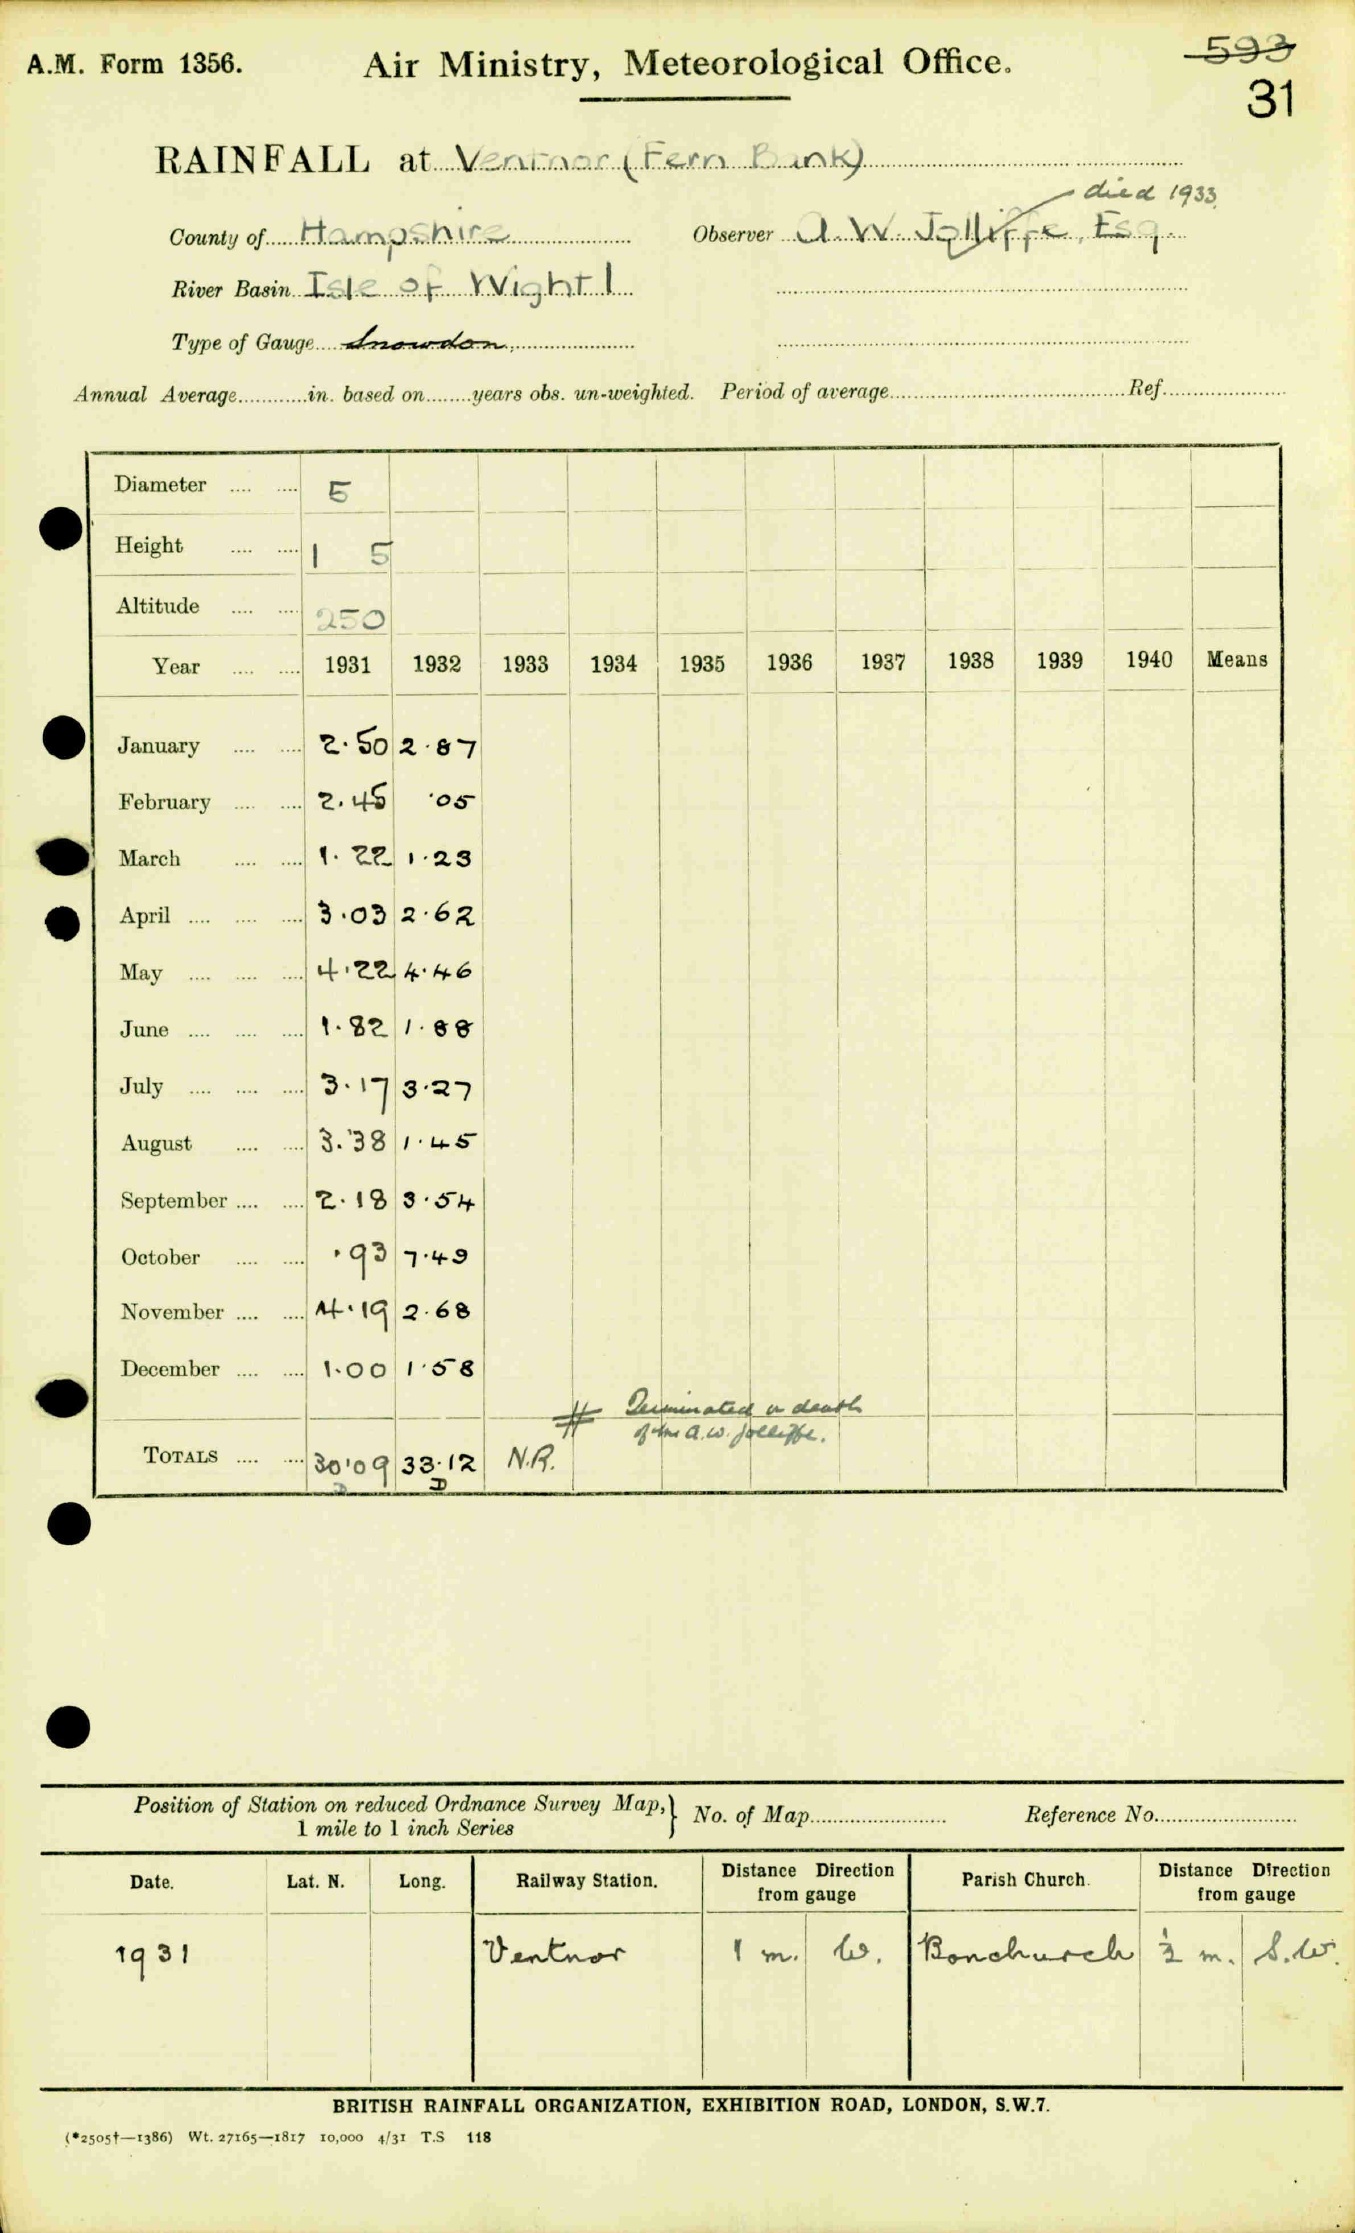 A.M. Form 1356.
Air Ministry, Meteorological Office.
593
31
RAINFALL at Ventnor (Fern Bank)
died 1933.
County of Hampshire Observer A. W. Jolliffe, Esq.
River Basin Isle of Wight 1
Type of Gauge Snowdon.
Annual Average in. based on years obs. un-weighted. Period of average Ref.
Diameter 5
Height 1 5
Altitude 250
Year 1931 1932 1933 1934 1935 1936 1937 1938 1939 1940 Means
January 2.50 2.87
February 2.45 .05
March 1.22 1.23
April 3.03 2.62
May 4.22 4.46
June 1.82 1.88
July 3.17 3.27
August 3.38 1.45
September 2.18 3.54
October .93 7.49
November 4.19 2.68
December 1.00 1.58
Terminated on death
of Mr A.W. Jolliffe.
TOTALS 30.09 33.12 N.R.
D D
Position of Station on reduced Ordnance Survey Map,
1 mile to 1 inch Series
No. of Map Reference No.
Date. Lat. N. Long. Railway Station. Distance Direction from gauge Parish Church. Distance Direction from gauge
1931 Ventnor 1 m. W. Bonchurch ½ m. S.W.
BRITISH RAINFALL ORGANIZATION, EXHIBITION ROAD, LONDON, S.W.7.
(*2505†—1386) Wt. 27165—1817 10,000 4/31 T.S 118